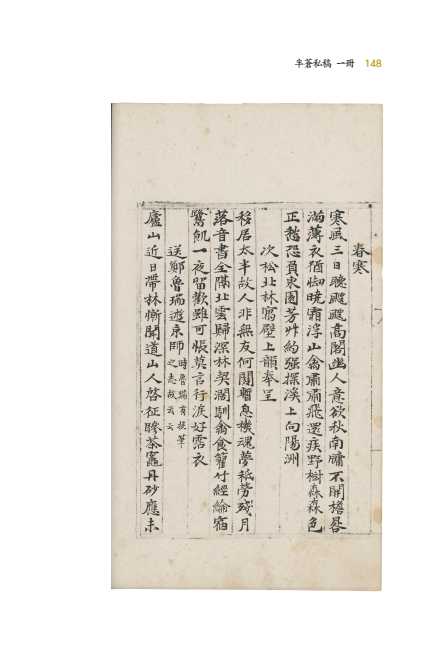 半蒼私稿 一冊 148
春寒
寒風三日聽飈飈高閣幽人意欲秋南牖不開檐晷
滿薄衣猶怯曉霜浮山禽肅肅飛還疾野樹森森色
正愁恐負東園芳艸約强探溪上向陽洲
次松北林寓壁上韻奉呈
移居太半故人非無友何關暫息機魂夢秪勞殘月
落音書全隔北雲歸深林契濶馴禽食籬竹經綸宿
鷺飢一夜留歡雖可悵莫言行淚好霑衣
送鄭魯瑞遊京師 時魯瑞有投筆
之志故云云
廬山近日帶林慚聞道山人啓征驂茶竈丹砂應未